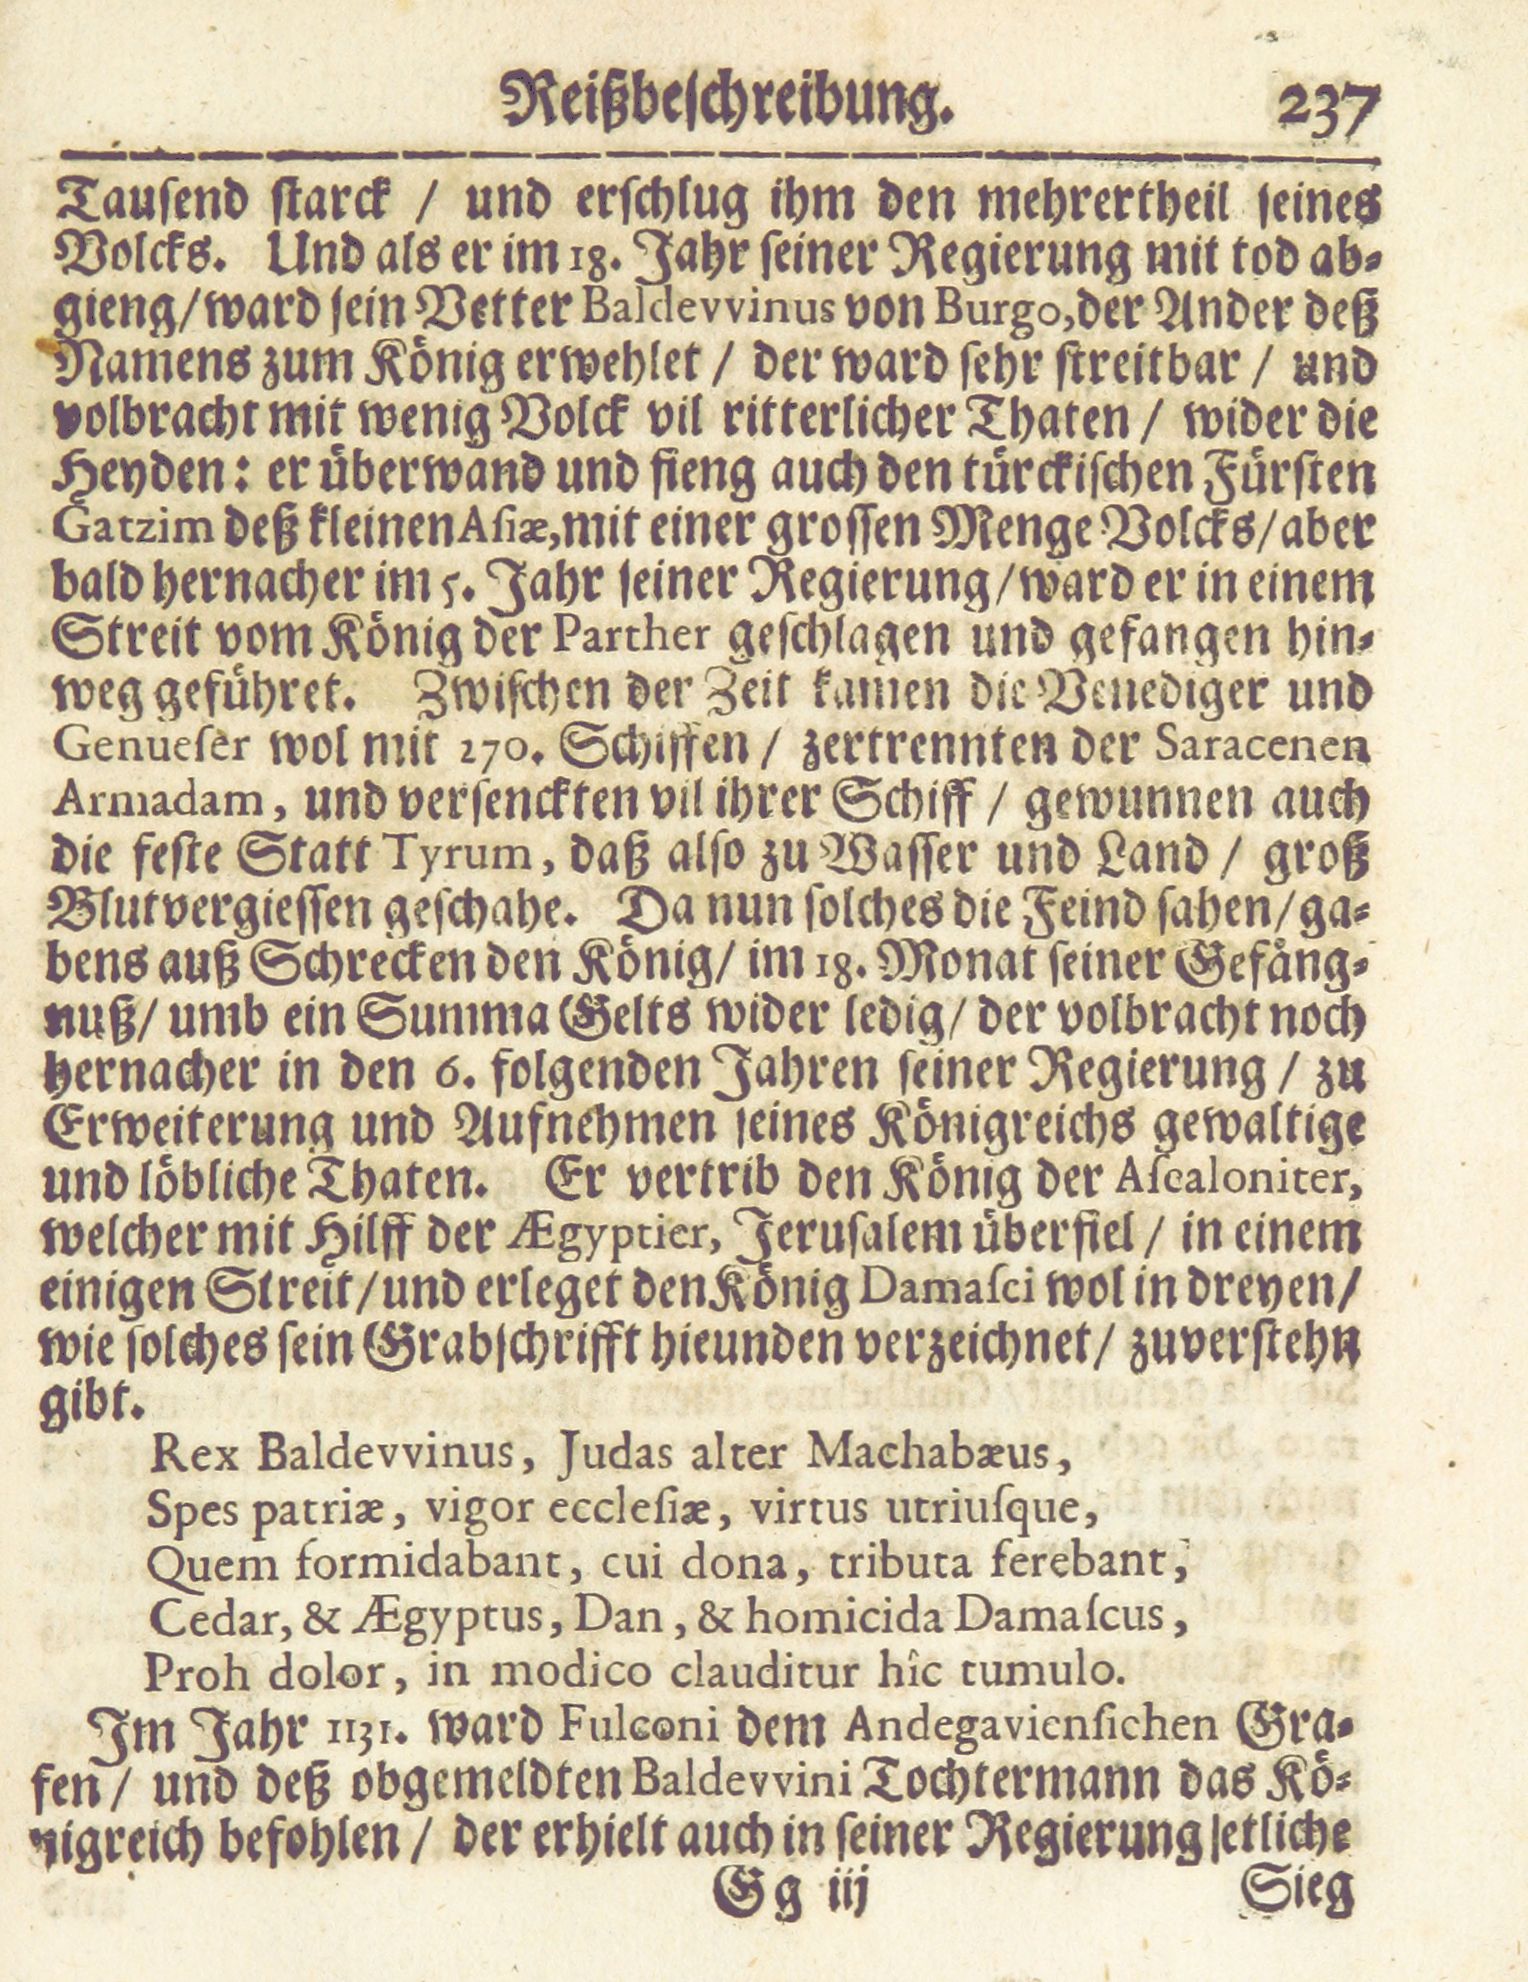 Reißbeschreibung. 237
Tausend starck / und erschlug ihm den mehrertheil seines
Volcks. Und als er im 18. Jahr seiner Regierung mit tod ab-
gieng/ ward sein Vetter Baldevvinus von Burgo, der Ander deß
Namens zum König erwehlet / der ward sehr streitbar / und
volbracht mit wenig Volck vil ritterlicher Thaten / wider die
Heyden: er überwand und fieng auch den türckischen Fürsten
Gatzim deß kleinen Asiæ, mit einer grossen Menge Volcks/ aber
bald hernacher im 5. Jahr seiner Regierung / ward er in einem
Streit vom König der Parther geschlagen und gefangen hin-
weg geführet. Zwischen der Zeit kamen die Venediger und
Genueser wol mit 270. Schiffen / zertrennten der Saracenen
Armadam, und versenckten vil ihrer Schiff / gewunnen auch
die feste Statt Tyrum, daß also zu Wasser und Land / groß
Blutvergiessen geschahe. Da nun solches die Feind sahen/ ga-
bens auß Schrecken den König/ im 18. Monat seiner Gefäng-
nuß/ umb ein Summa Gelts wider ledig/ der volbracht noch
hernacher in den 6. folgenden Jahren seiner Regierung / zu
Erweiterung und Aufnehmen seines Königreichs gewaltige
und löbliche Thaten. Er vertrib den König der Ascaloniter,
welcher mit Hilff der Ægyptier, Jerusalem überfiel / in einem
einigen Streit / und erleget den König Damasci wol in dreyen/
wie solches sein Grabschrifft hieunden verzeichnet/ zuverstehn
gibt.
Rex Baldevvinus, Judas alter Machabæus,
Spes patriæ, vigor ecclesiæ, virtus utriusque,
Quem formidabant, cui dona, tributa ferebant,
Cedar, & Ægyptus, Dan, & homicida Damascus,
Proh dolor, in modico clauditur hîc tumulo.
Im Jahr 1131. ward Fulconi dem Andegaviensichen Gra-
fen / und deß obgemeldten Baldevvini Tochtermann das Kö-
nigreich befohlen / der erhielt auch in seiner Regierung etliche
Gg iij Sieg